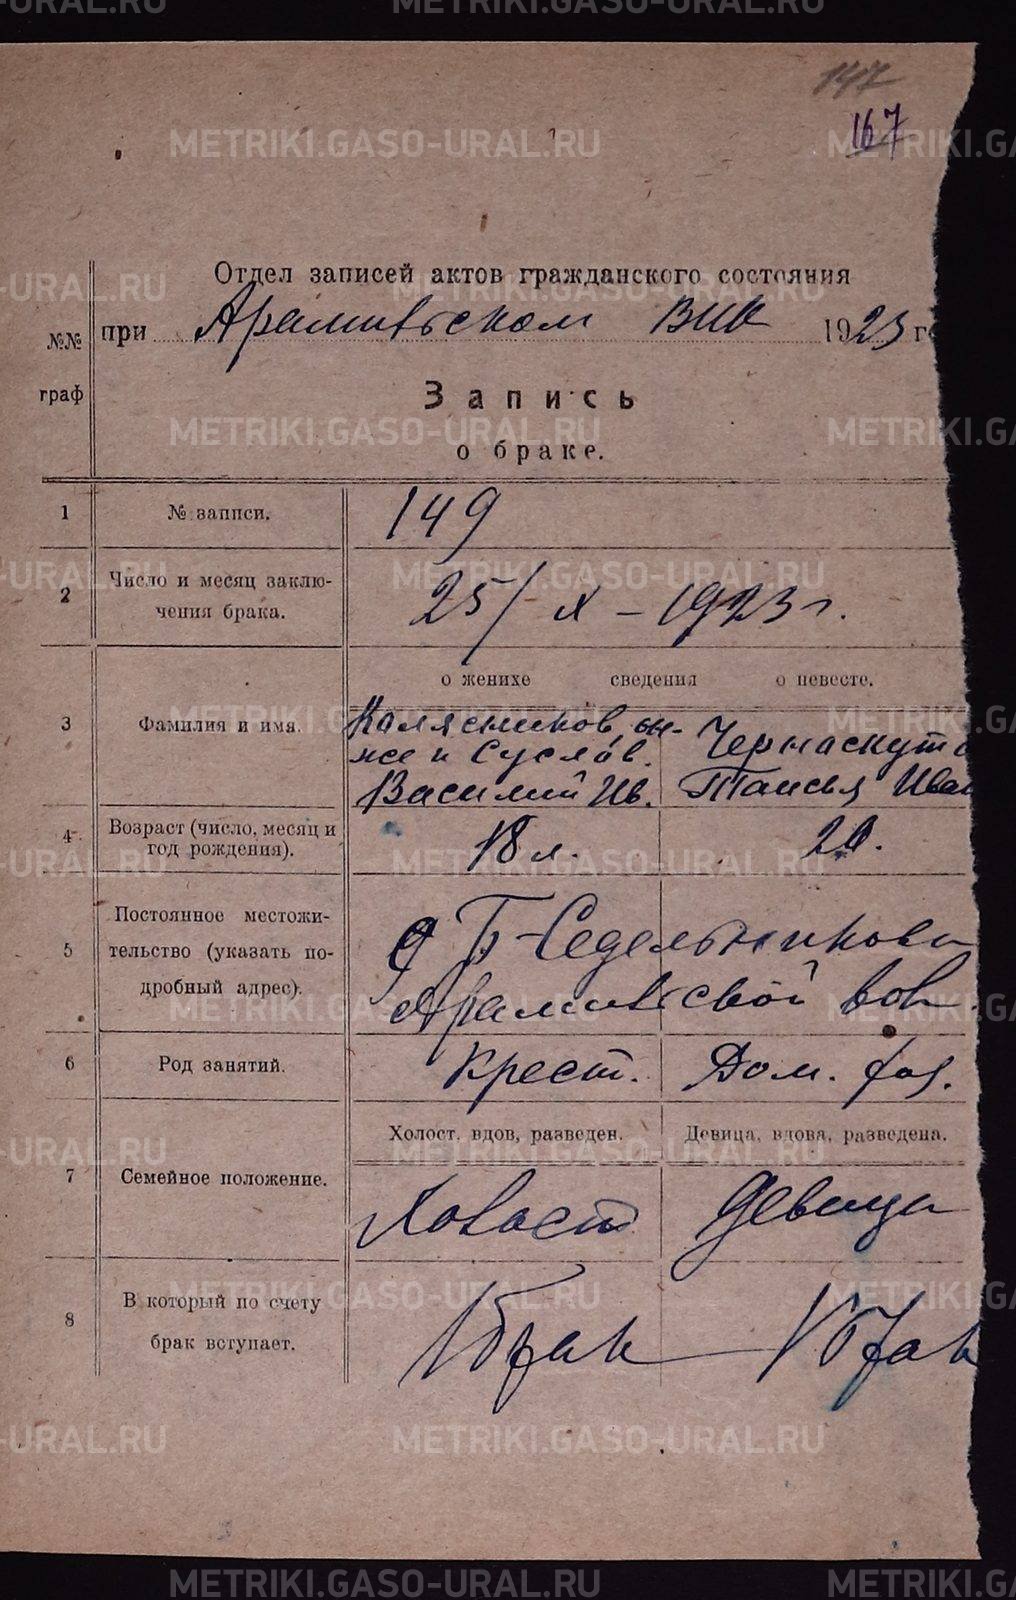 147
167
Отдел записей актов гражданского состояния
№№ при Арамильском ВИК 1923 г
граф
Запись
о браке.
1 № записи. 149
2 Число и месяц заклю-
чения брака. 25/X – 1923 г.
о женихе сведения о невесте.
3 Фамилия и имя. Калясников, он- Черноскут
же и Суслов. Таисья Иван
Василий Ив.
4 Возраст (число, месяц и
год рождения). 18 л. 20.
5 Постоянное местожи-
тельство (указать по-
дробный адрес). Б-Седельникова
Арамильской вол.
6 Род занятий. Крест. Дом. хоз.
Холост, вдов, разведен. Девица, вдова, разведена.
7 Семейное положение. Холост Девица
8 В который по счету
брак вступает. 1 брак 1 брак
METRIKI.GASO-URAL.RU